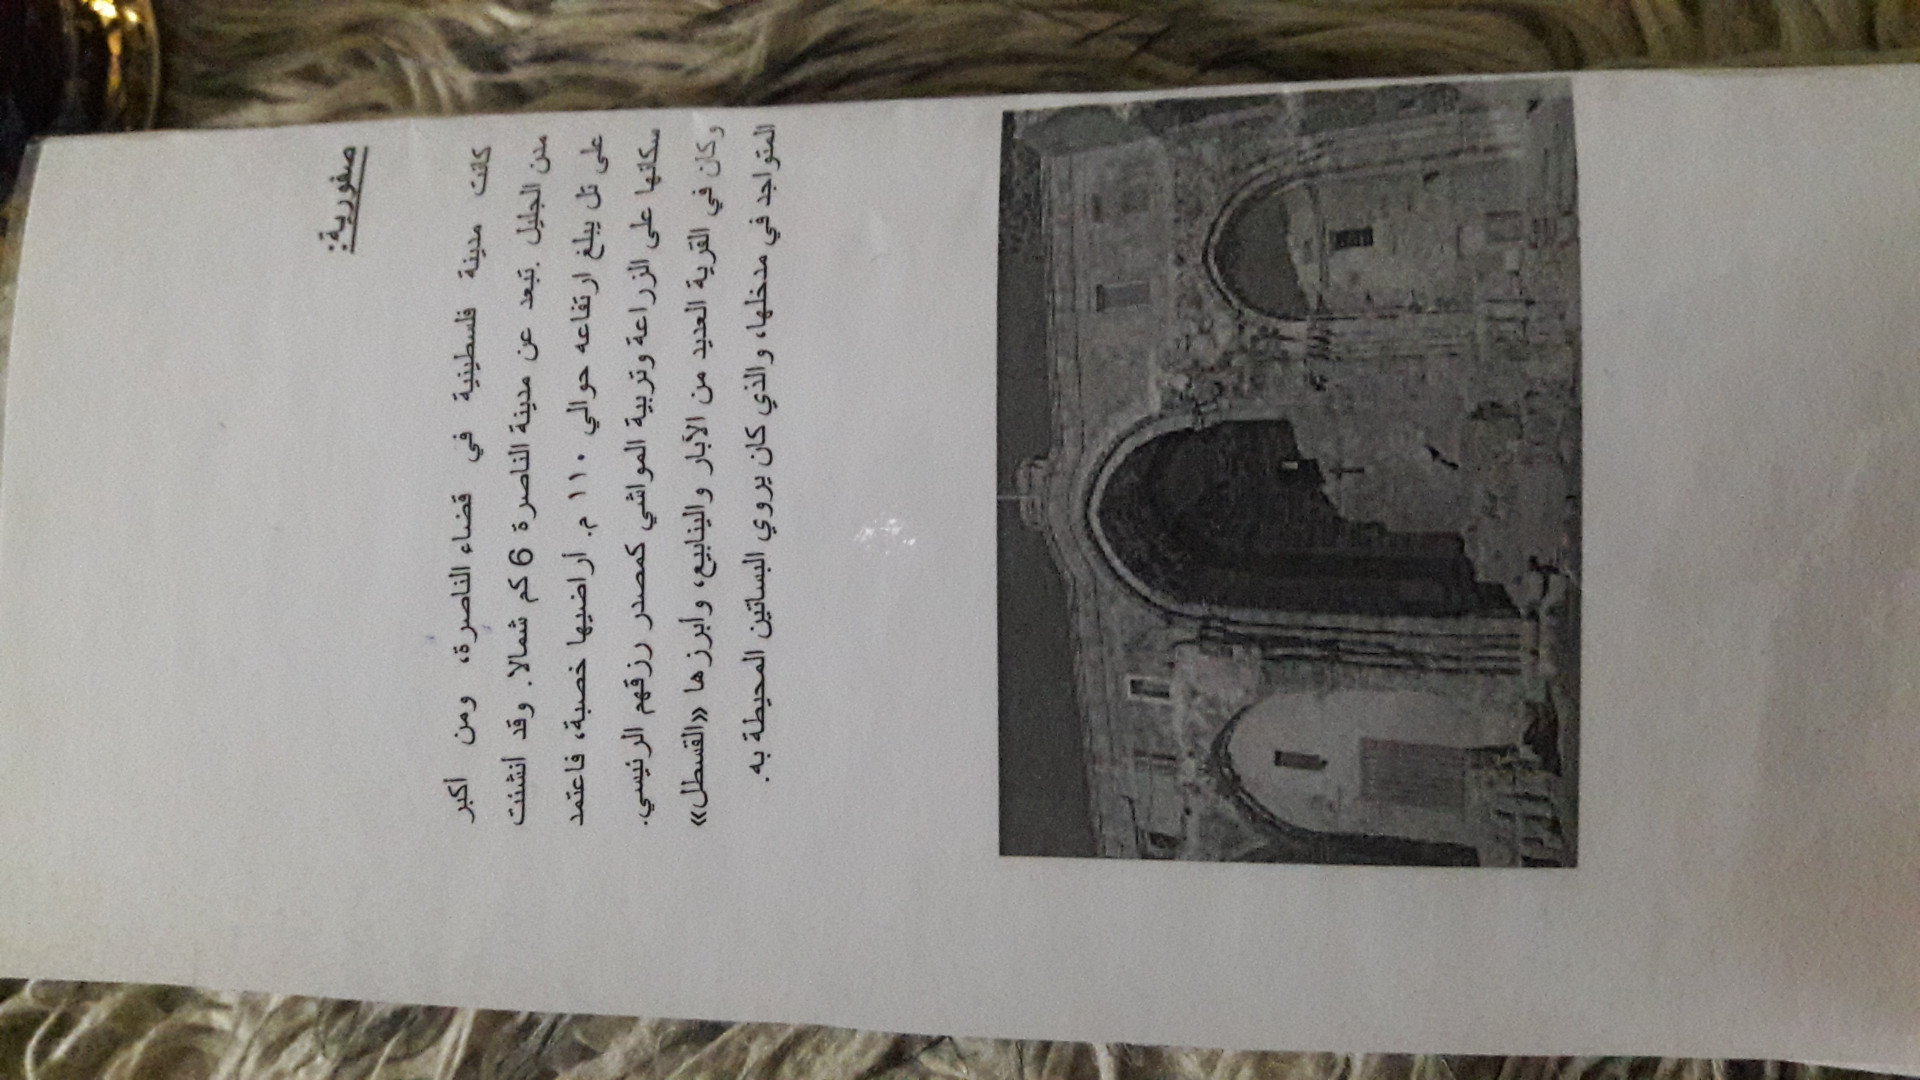 صفورية:
كانت مدينة فلسطينية في قضاء الناصرة، ومن أكبر
مدن الجليل. تبعد عن مدينة الناصرة 6 كم شمالا. وقد أنشئت
على تل يبلغ ارتفاعه حوالي ١١٠ م. أراضيها خصبة، فاعتمد
سكانها على الزراعة وتربية المواشي كمصدر رزقهم الرئيسي.
وكان في القرية العديد من الآبار والينابيع، وأبرزها «القسطل»
المتواجد في مدخلها، والذي كان يروي البساتين المحيطة به.